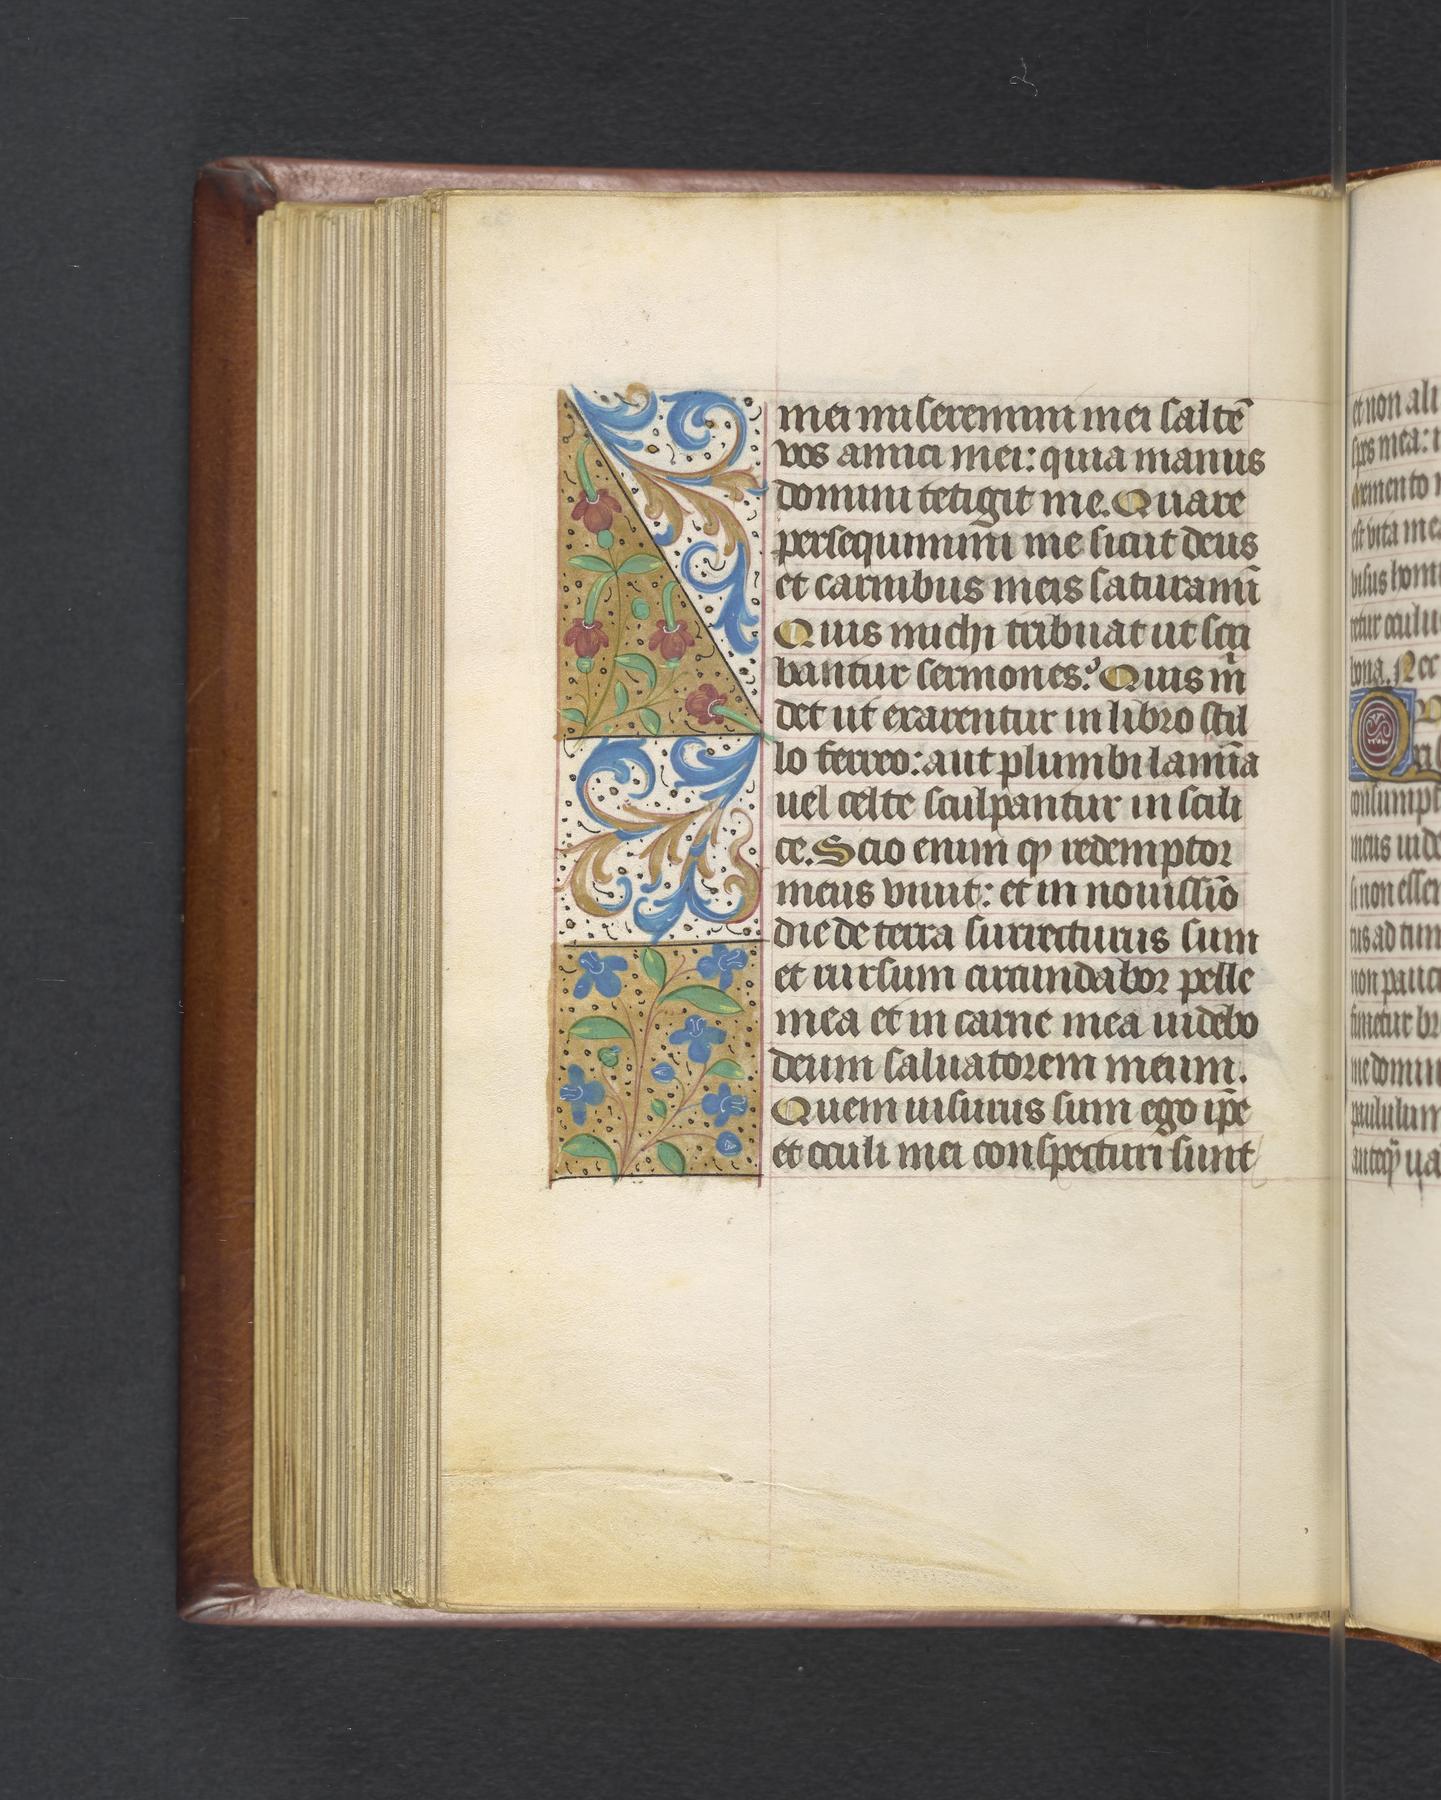 mei miseremini mei saltē
vos amici mei: quia manus
domini tetigit me. Quare
persequimini me sicut deus
et carnibus meis saturami̅
Quis michi tribuat ut scri
bantur sermones? Quis m̅
det ut exarentur in libro stil
lo ferreo: aut plumbi lami̅a
uel celte sculpantur in scili
ce. Scio enim qꝫ redemptor
meus viuit: et in nouissi̅o
die de terra surrecturus sum
et rursum circundabor pelle
mea et in carne mea uidebo
deum saluatorem meum.
Quem uisurus sum ego ip̅e
et oculi mei conspecturi sunt
et non ali
spes mea:
memento
est vita mea
retur oculus
bona. Nec
consumpt
meus uide
si non esse
non pauci
finietur br
me domin
paululum